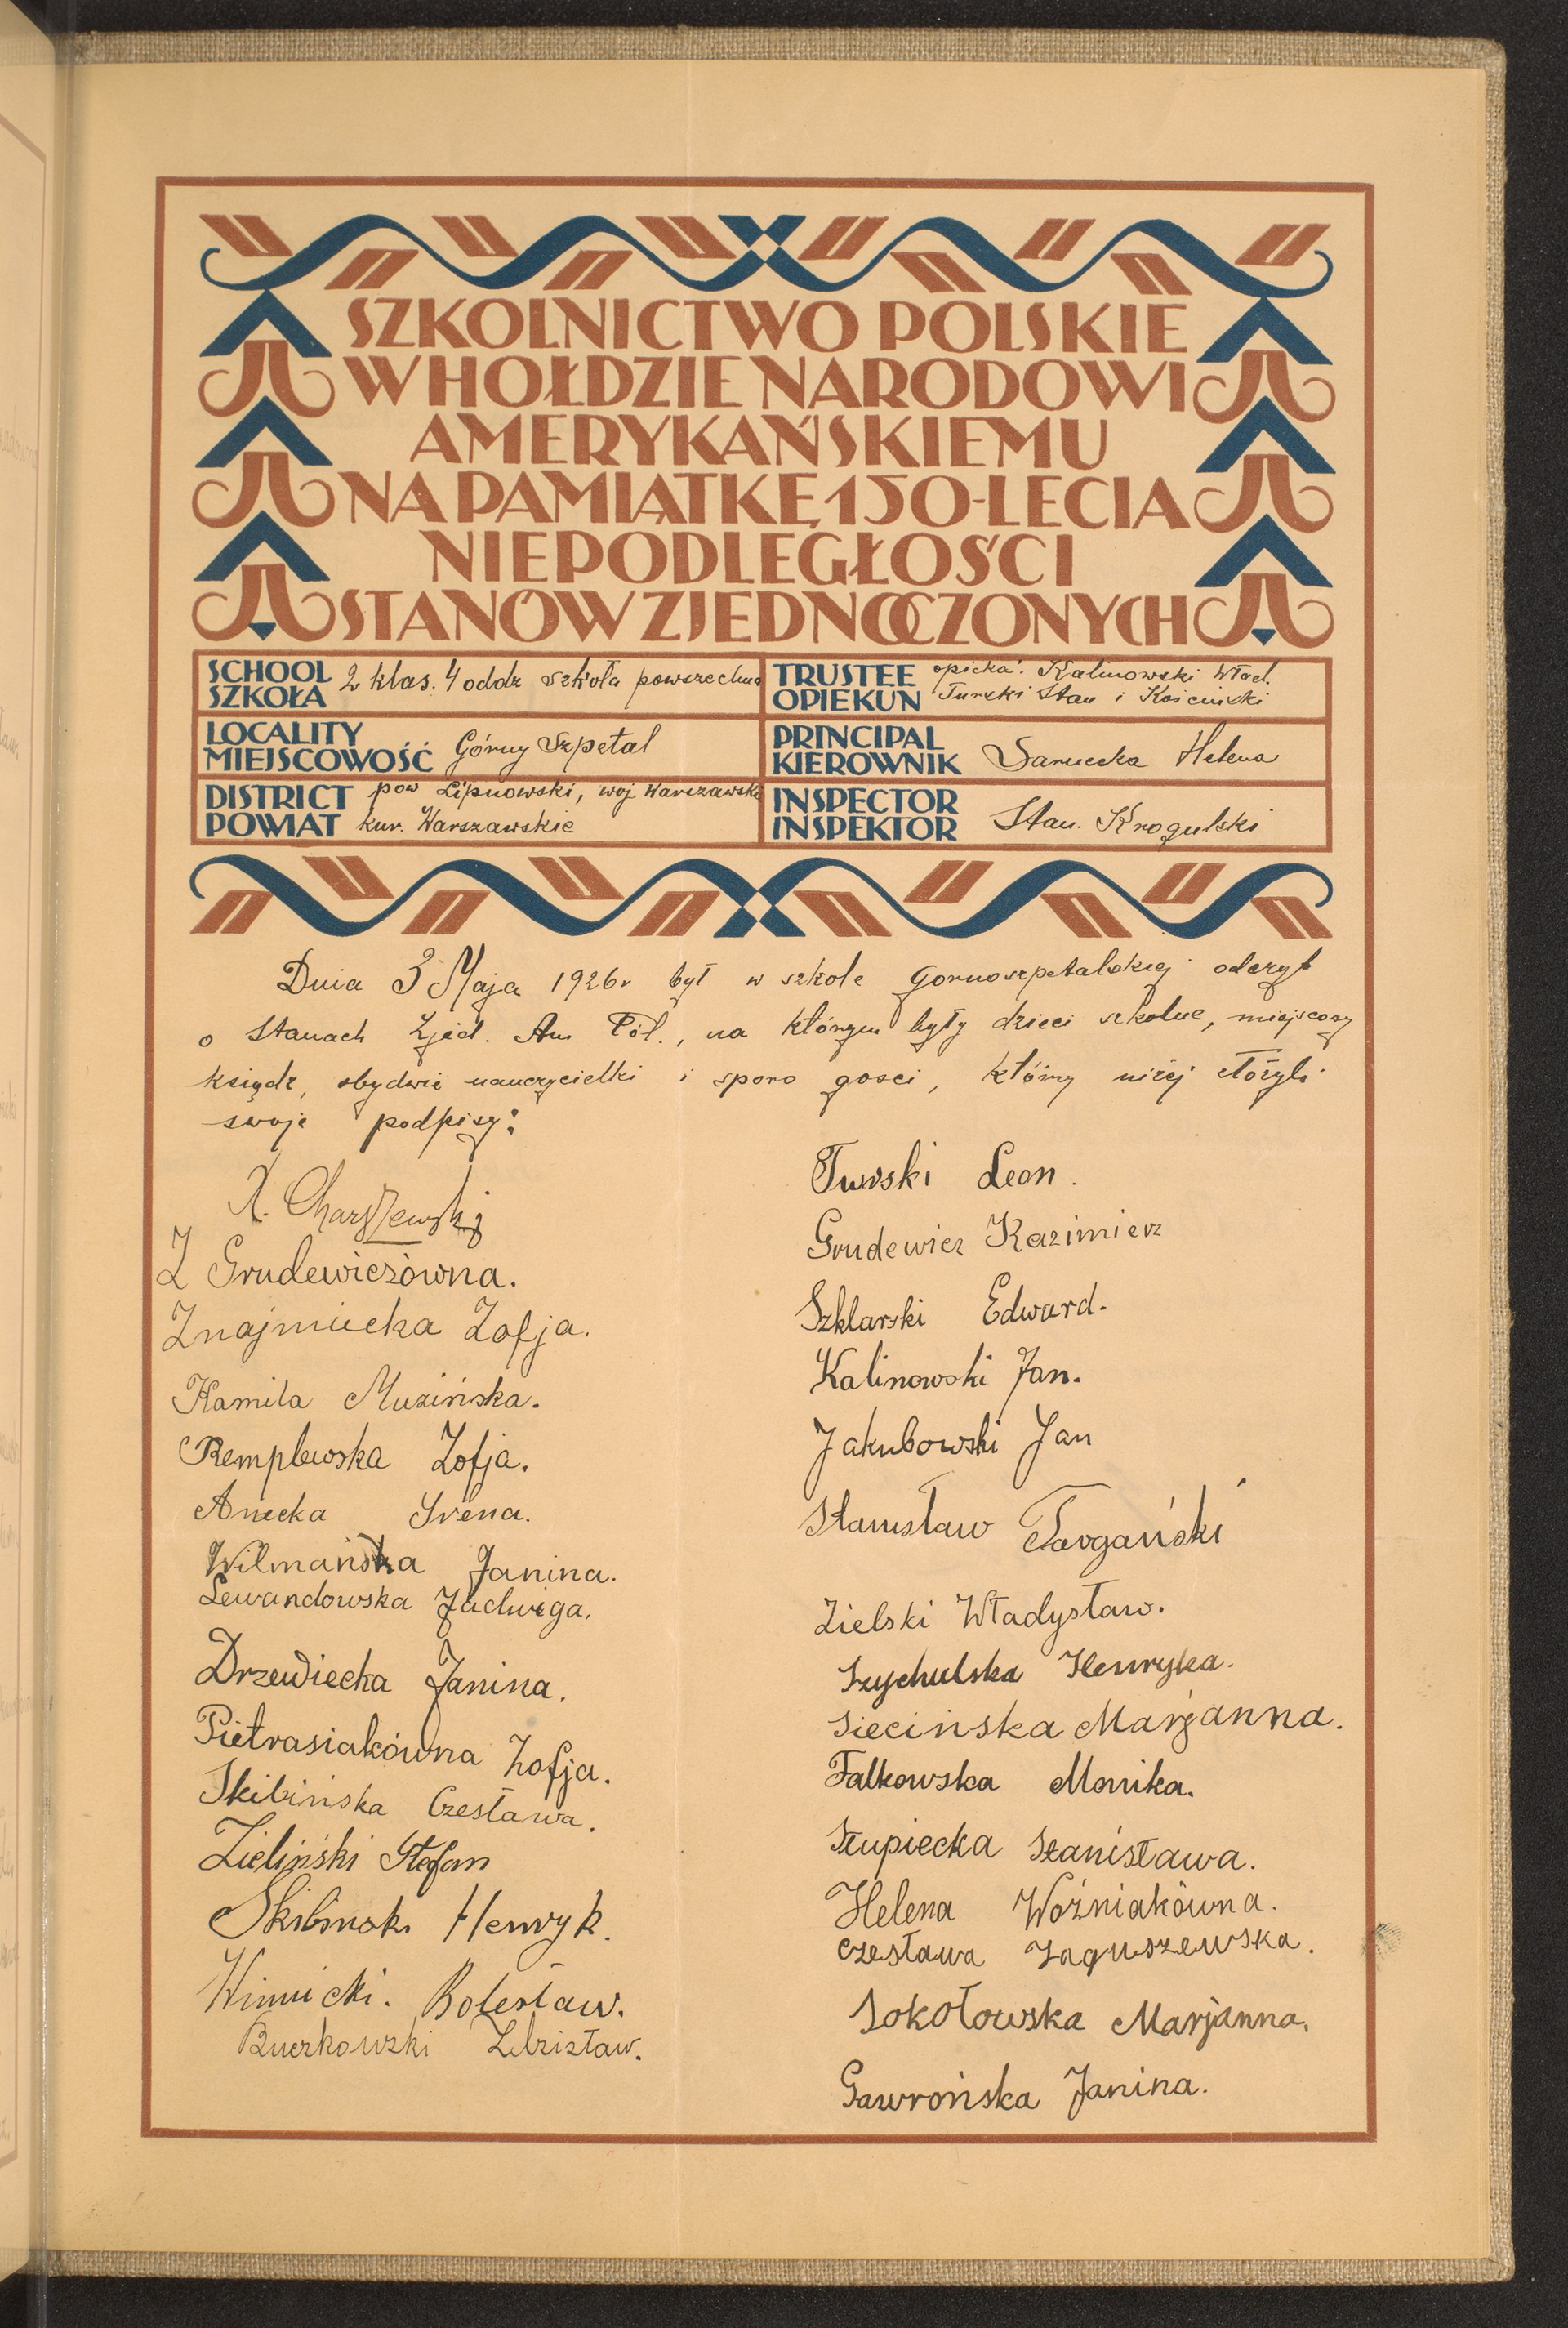 SZKOLNICTWO POLSKIE
W HOŁDZIE NARODOWI
AMERYKAŃSKIEMU
NA PAMIĄTKĘ 150-LECIA
NIEPODLEGŁOŚCI
STANÓW ZJEDNOCZONYCH
SCHOOL
SZKOŁA
2 klas. 4 oddz szkoła powszechna
TRUSTEE
OPIEKUN
opieka: Kalinowski Wład.
Turski Stan i Kościński
LOCALITY
MIEJSCOWOŚĆ
Górny Szpetal
PRINCIPAL
KIEROWNIK
Sarnecka Helena
DISTRICT
POWIAT
pow Lipnowski, woj Warszawskie
kur. Warszawskie
INSPECTOR
INSPEKTOR
Stan. Krogulski
Dnia 3 Maja 1926r był w szkole gornoszpetalskiej odczyt
o Stanach Zjed. Am Półł., na którym były dzieci szkolne, miejscowy
ksiądz, obydwie nauczycielki i sporo gosci, którzy niżej złożyli
swoje podpisy:
X. Charszewski
Z Grudewiczówna.
Znajmiecka Zofja.
Kamila Muzińska.
Remplewska Zofja.
Irena.
Wilmańska Janina.
Lewandowska Jadwiga.
Drzewiecka Janina.
Pietrasiakówna Zofja.
Skibińska Czesława.
Zieliński Stefan
Skibinski Henryk.
Winnicki. Bolesław.
Buczkowski Zdzisław.
Turski Leon.
Grudewicz Kazimierz
Szklarski Edward.
Kalinowski Jan.
Jakubowski Jan
Stanisław Targański
Zielski Władysław.
Szychulska Henryka.
Siecińska Marjanna.
Falkowska Monika.
Słupiecka Stanisława.
Helena Woźniakówna.
Czesława Jaguszewska.
Sokołowska Marjanna.
Gawrońska Janina.